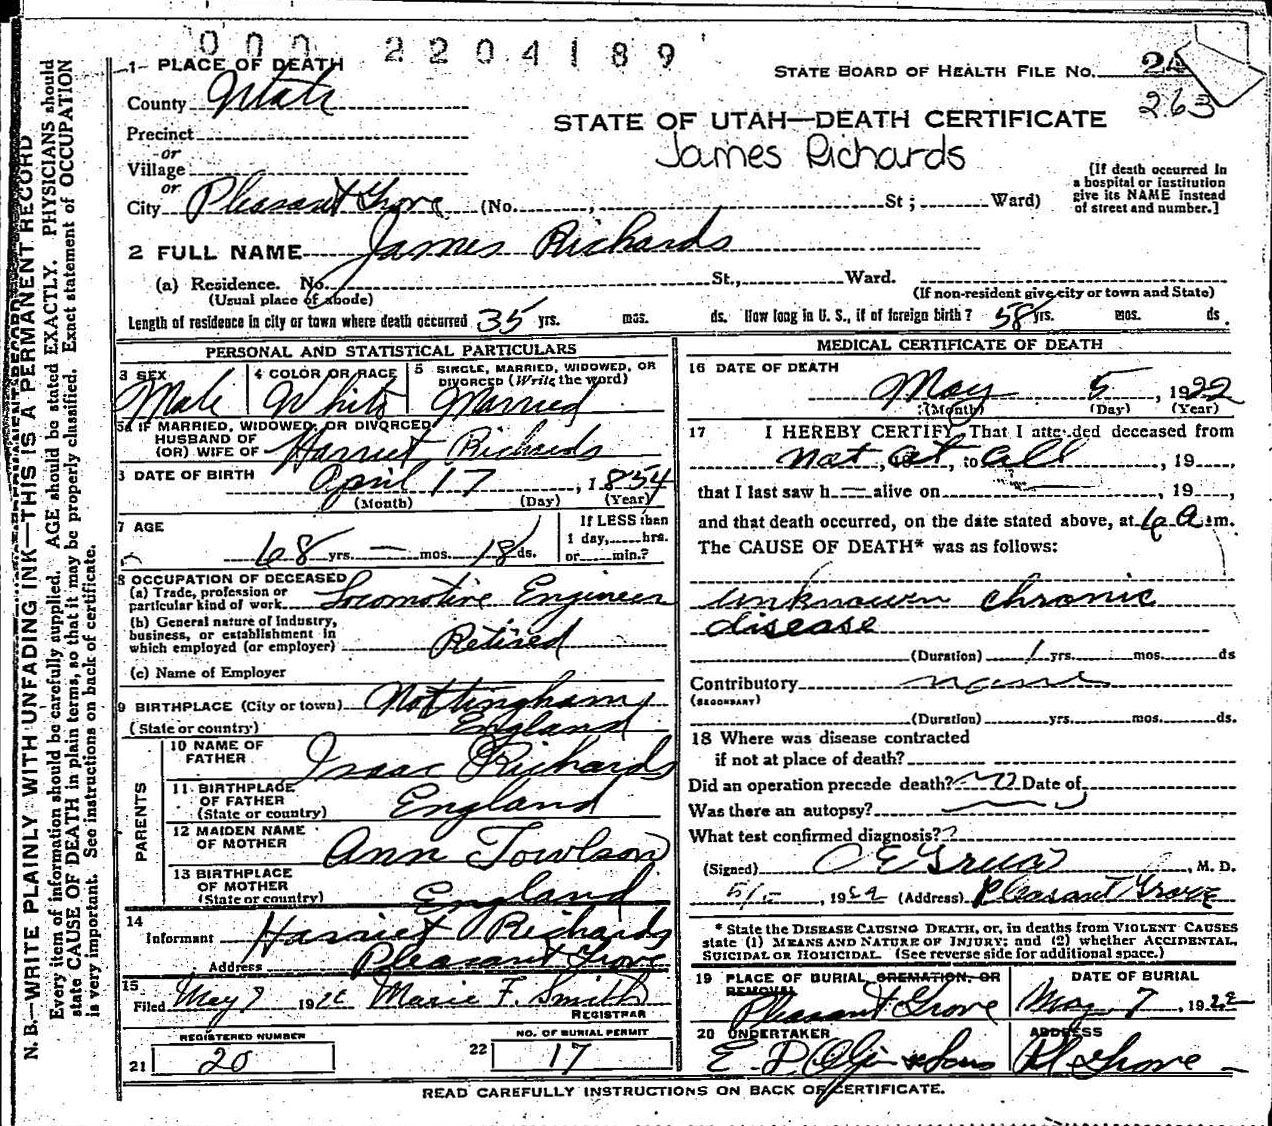 000 2204189
1 PLACE OF DEATH
STATE BOARD OF HEALTH FILE NO. 24
263
County Utah
STATE OF UTAH—DEATH CERTIFICATE
James Richards
Precinct
or
Village
or
City Pleasant Grove (No. , St; Ward)
[If death occurred in
a hospital or institution
give its NAME instead
of street and number.]
2 FULL NAME James Richards
(a) Residence. No. St., Ward.
(Usual place of abode)
(If non-resident give city or town and State)
Length of residence in city or town where death occurred 35 yrs. mos. ds. How long in U. S., if of foreign birth? 58 yrs. mos. ds.
PERSONAL AND STATISTICAL PARTICULARS
3 SEX
Male
4 COLOR OR RACE
White
5 SINGLE, MARRIED, WIDOWED, OR
DIVORCED (Write the word)
Married
5a IF MARRIED, WIDOWED, OR DIVORCED
HUSBAND OF
(OR) WIFE OF Harriet Richards
6 DATE OF BIRTH
April 17, 1854
(Month) (Day) (Year)
7 AGE
68 yrs. — mos. 18 ds.
If LESS than
1 day, hrs.
or min.?
8 OCCUPATION OF DECEASED
(a) Trade, profession or
particular kind of work Locomotive Engineer
(b) General nature of Industry,
business, or establishment in
which employed (or employer) Retired
(c) Name of Employer
9 BIRTHPLACE (City or town) Nottingham
(State or country) England
PARENTS
10 NAME OF
FATHER Isaac Richards
11 BIRTHPLACE
OF FATHER
(State or country) England
12 MAIDEN NAME
OF MOTHER Ann Towlson
13 BIRTHPLACE
OF MOTHER
(State or country) England
14
Informant Harriet Richards
Address Pleasant Grove
15
Filed May 7 1922 Marie F. Smith
REGISTRAR
REGISTERED NUMBER
21 20
NO. OF BURIAL PERMIT
22 17
MEDICAL CERTIFICATE OF DEATH
16 DATE OF DEATH
May 5, 1922
(Month) (Day) (Year)
17 I HEREBY CERTIFY, That I attended deceased from
not, 19 at, to all, 19 ,
that I last saw h — alive on , 19 ,
and that death occurred, on the date stated above, at 6 a.m.
The CAUSE OF DEATH* was as follows:
unknown chronic
disease
(Duration) 1 yrs. mos. ds
Contributory none
(SECONDARY)
(Duration) yrs. mos. ds.
18 Where was disease contracted
if not at place of death?
Did an operation precede death? no Date of
Was there an autopsy?
What test confirmed diagnosis? ?
(Signed) , M. D.
, 1922 (Address) Pleasant Grove
* State the DISEASE CAUSING DEATH, or, in deaths from VIOLENT CAUSES
state (1) MEANS AND NATURE OF INJURY; and (2) whether ACCIDENTAL,
SUICIDAL OR HOMICIDAL. (See reverse side for additional space.)
19 PLACE OF BURIAL CREMATION, OR
REMOVAL
Pleasant Grove
DATE OF BURIAL
May 7, 1922
20 UNDERTAKER
E. D. Olpin & Sons
ADDRESS
Pl Grove
READ CAREFULLY INSTRUCTIONS ON BACK OF CERTIFICATE.
N. B.—WRITE PLAINLY WITH UNFADING INK—THIS IS A PERMANENT RECORD
Every item of information should be carefully supplied. AGE should be stated EXACTLY. PHYSICIANS should
state CAUSE OF DEATH in plain terms, so that it may be properly classified. Exact statement of OCCUPATION
is very important. See instructions on back of certificate.